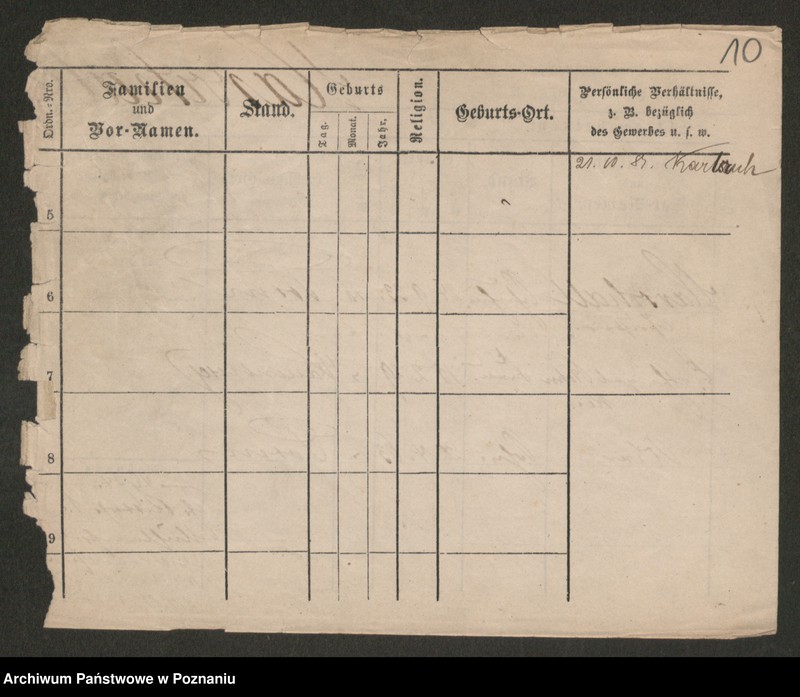 10
Ordn.=Nro.
Familien
und
Vor-Namen.
Stand.
Geburts
Tag.
Monat.
Jahr.
Religion.
Geburts-Ort.
Persönliche Verhältnisse,
z. B. bezüglich
des Gewerbes u. s. w.
21. 10. 81.
5
6
7
8
9
Archiwum Państwowe w Poznaniu